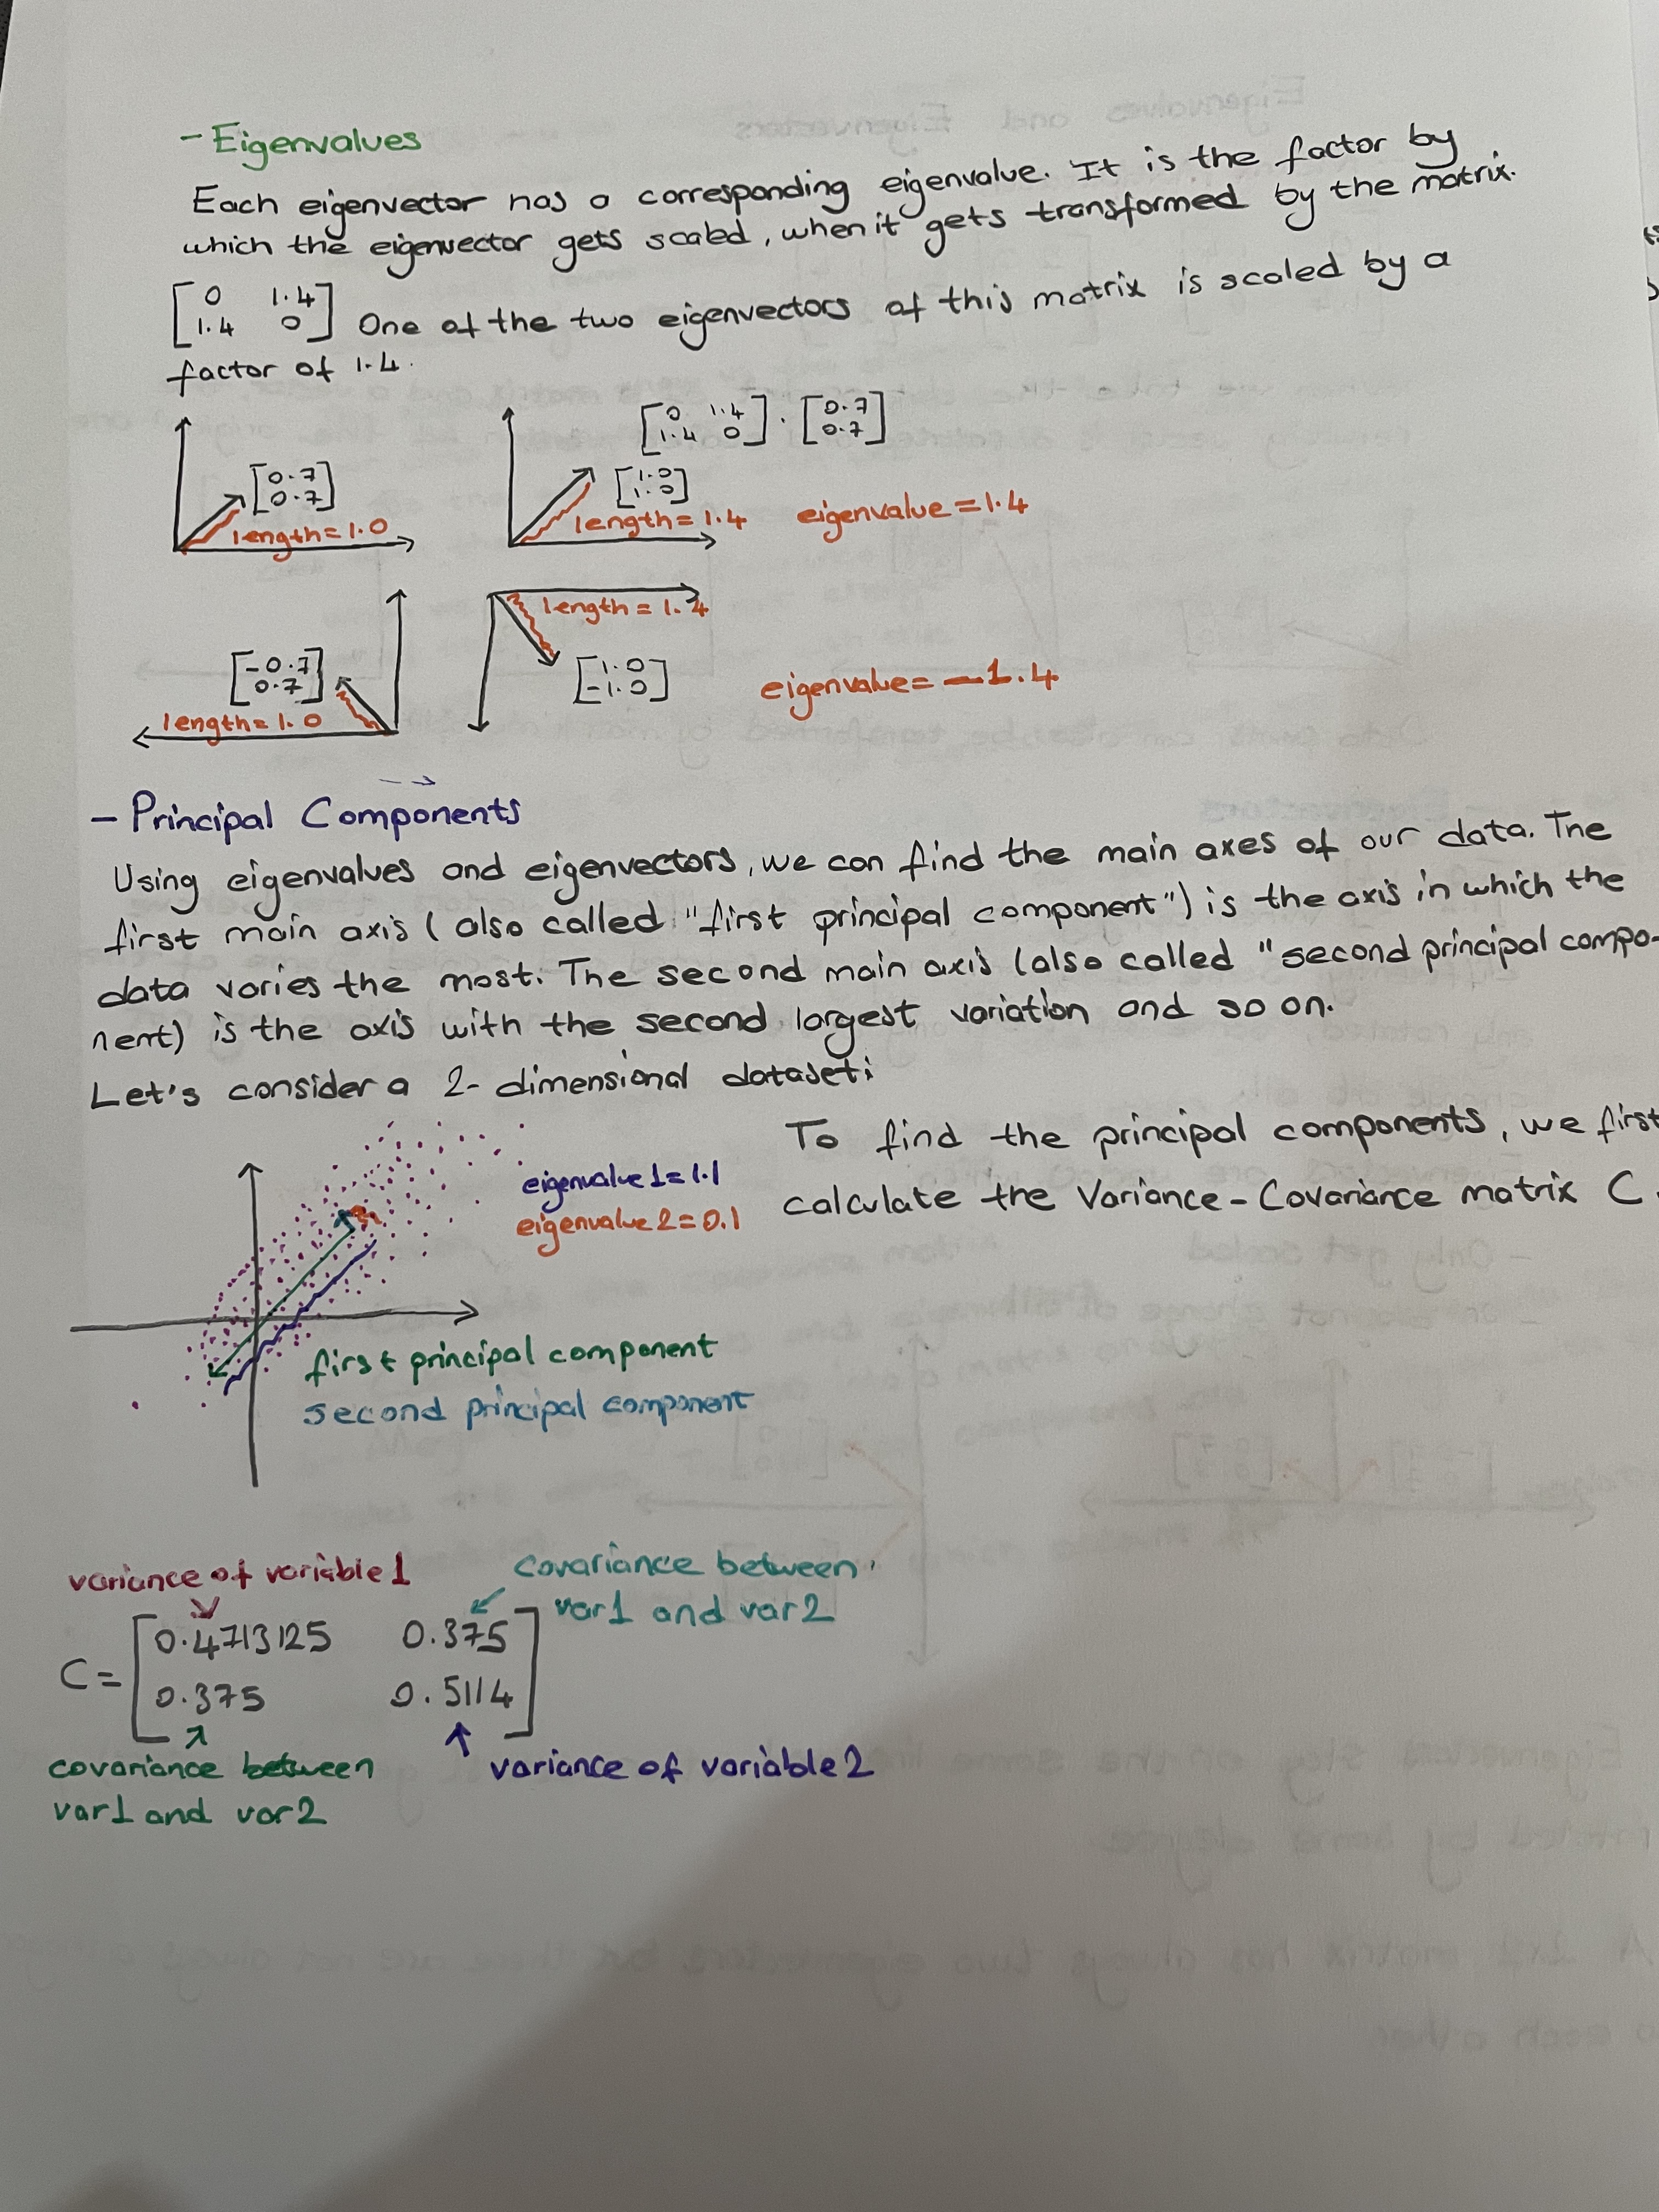 - Eigenvalues
Each eigenvector has a corresponding eigenvalue. It is the factor by
which the eigenvector gets scaled, when it gets transformed by the matrix.
[0 1.4
1.4 0] One of the two eigenvectors of this matrix is scaled by a
factor of 1.4.
[0 1.4
1.4 0] . [0.7
0.7]
[0.7
0.7]
length=1.0
[1.0
1.0]
length=1.4
eigenvalue=1.4
length=1.4
[-0.7
0.7]
length=1.0
[1.0
-1.0]
eigenvalue=-1.4
- Principal Components
Using eigenvalues and eigenvectors, we can find the main axes of our data. The
first main axis (also called "first principal component") is the axis in which the
data varies the most. The second main axis (also called "second principal compo-
nent) is the axis with the second largest variation and so on.
Let's consider a 2-dimensional dataset:
To find the principal components, we first
calculate the Variance-Covariance matrix C.
eigenvalue1=1.1
eigenvalue2=0.1
first principal component
second principal component
variance of variable1
covariance between
var1 and var2
C= [0.4713125 0.375
0.375 0.5114]
covariance between
var1 and var2
variance of variable2